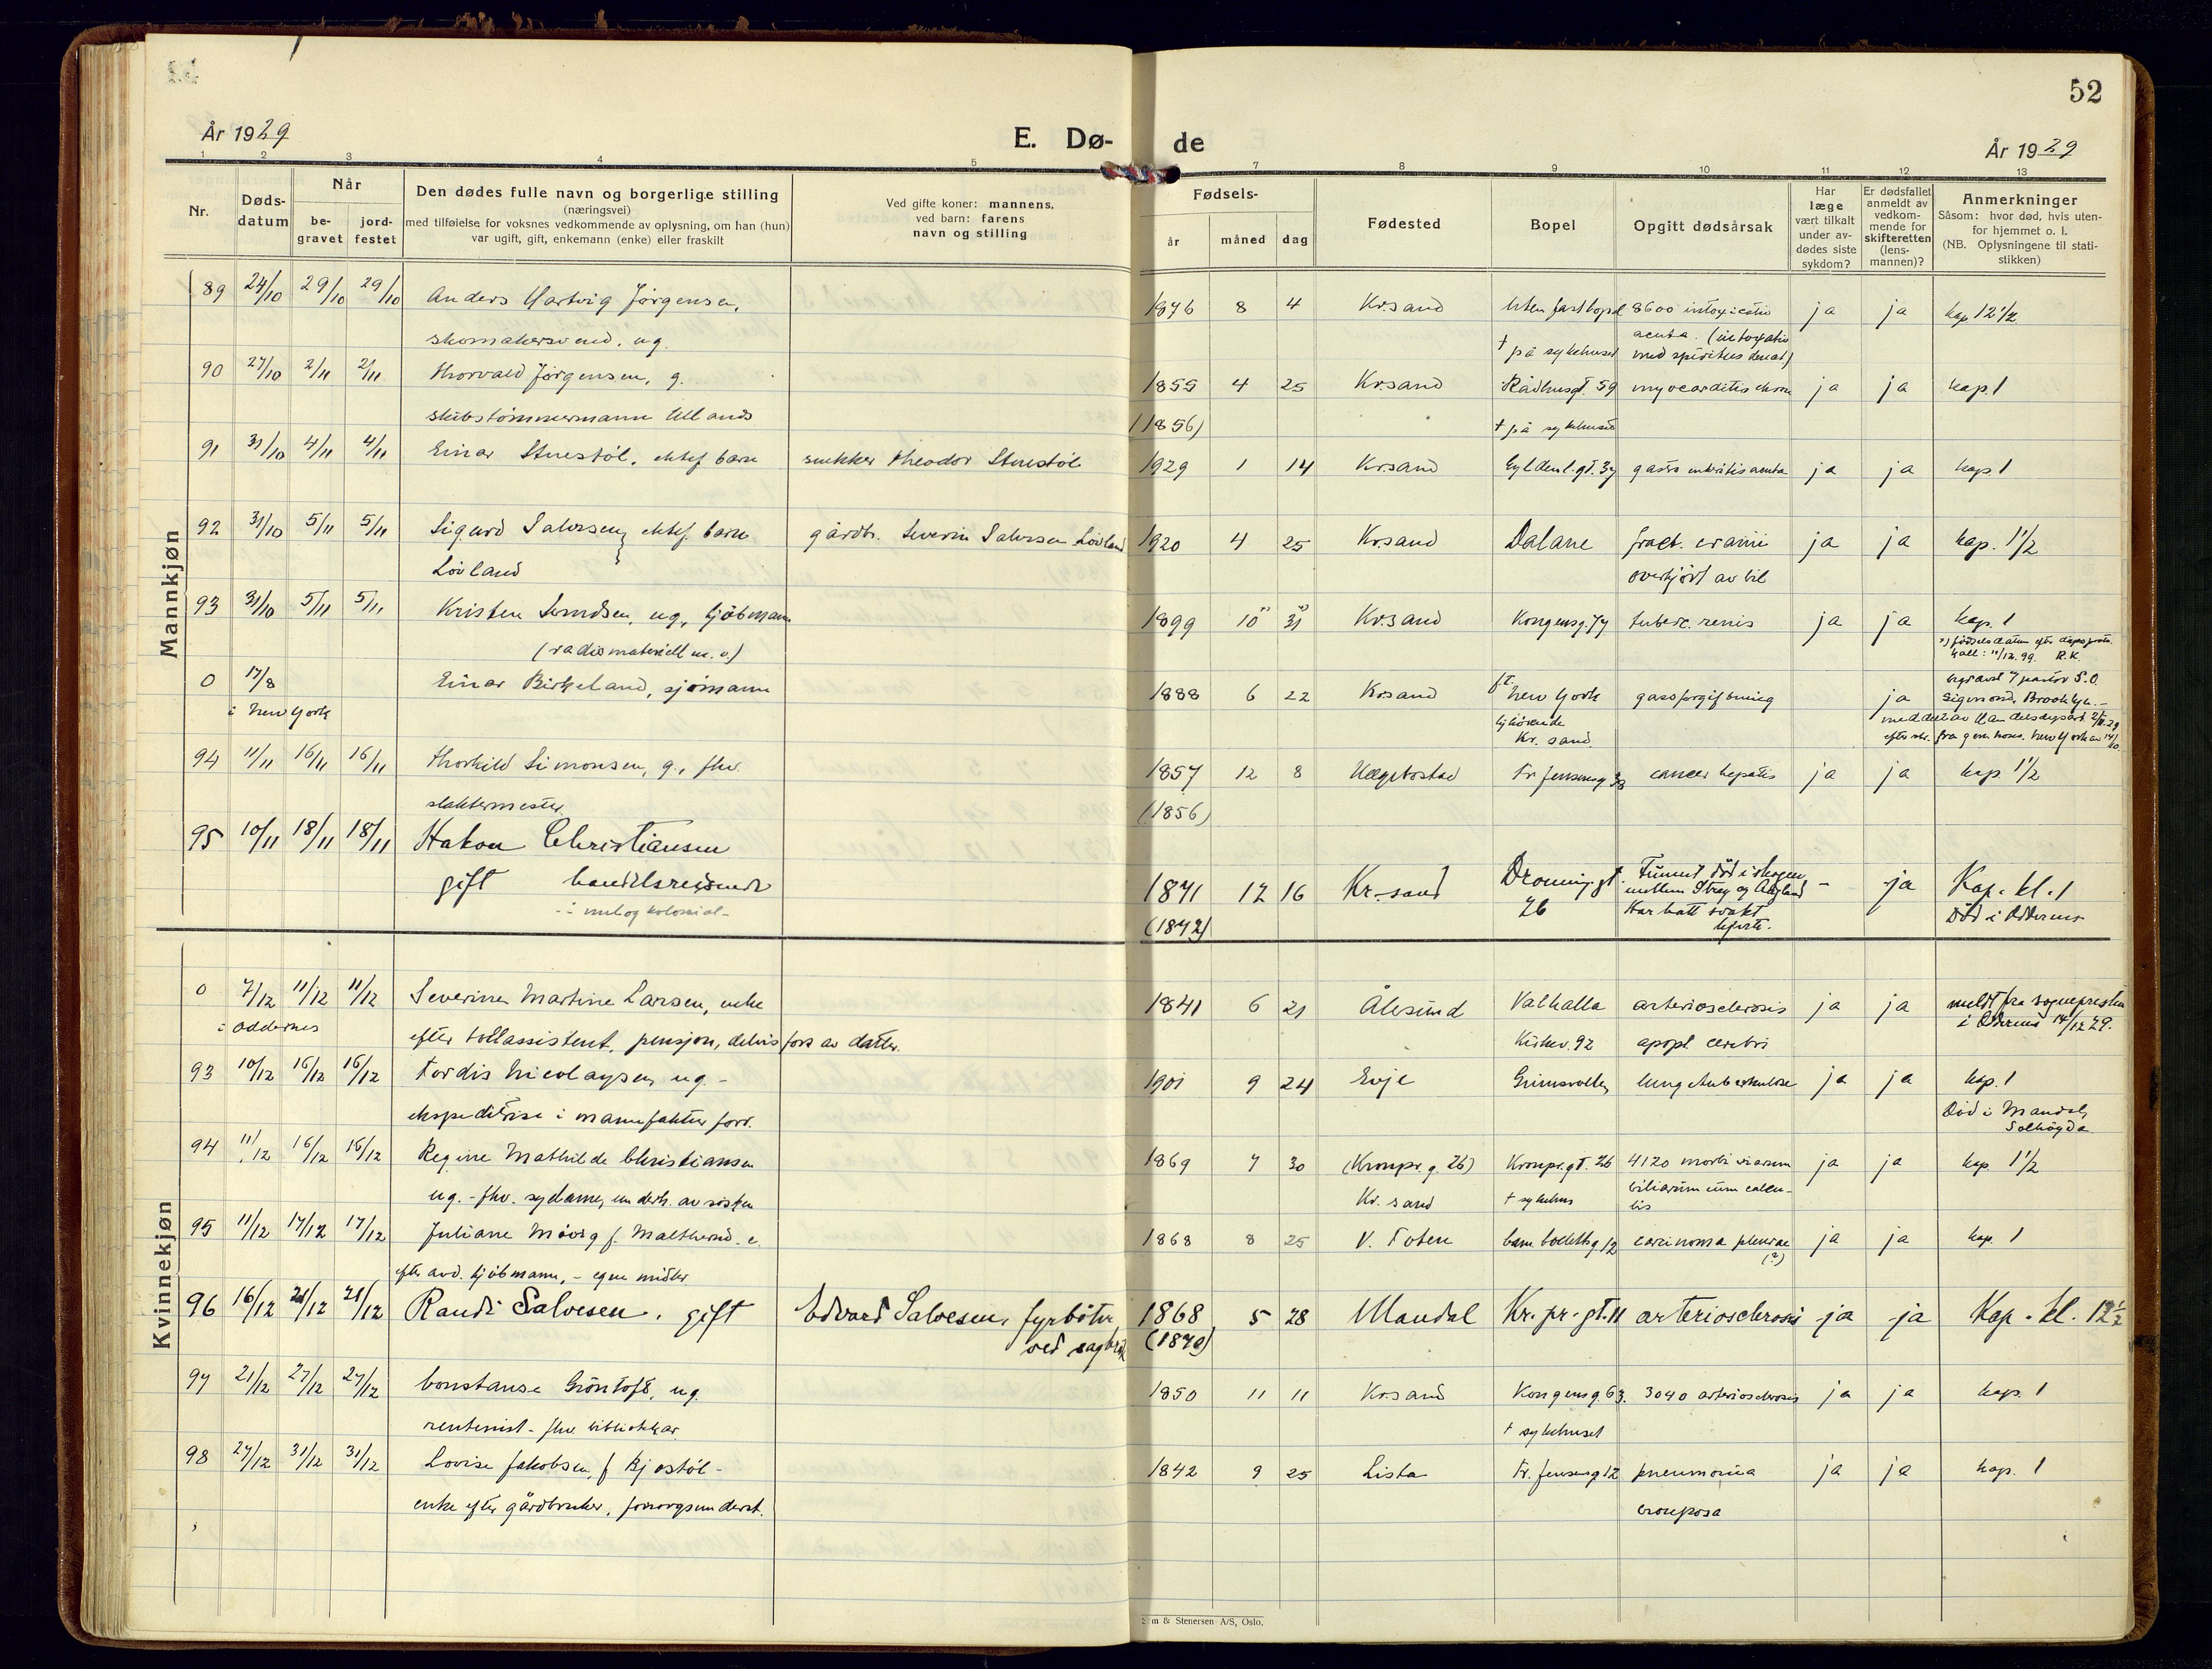 52
År 1929
E. Dø-
de
År 1929
1 2 3 4 5 7 8 9 10 11 12 13
Nr.
Døds-
datum
Når
be-
gravet
jord-
festet
Den dødes fulle navn og borgerlige stilling
(næringsvei)
med tilføielse for voksnes vedkommende av oplysning, om han (hun)
var ugift, gift, enkemann (enke) eller fraskilt
Ved gifte koner: mannens,
ved barn: farens
navn og stilling
Fødsels-
år
måned
dag
Fødested
Bopel
Opgitt dødsårsak
Har
læge
vært tilkalt
under av-
dødes siste
sykdom?
Er dødsfallet
anmeldt av
vedkom-
mende for
skifteretten
(lens-
mannen)?
Anmerkninger
Såsom: hvor død, hvis uten-
for hjemmet o. l.
(NB. Oplysningene til stati-
stikken)
Mannkjøn
89 24/10 29/10 29/10 Anders Hartvig Jörgensen, 1876 8 4 Kr.sand Uten fast bopel 8600 intoxicatio ja ja kap. 12 1/2
skomakersvend, ug. † på sykehuset acuta. (intoxatio
med spiritus denat)
90 27/10 2/11 2/11 Thorvald Jörgensen, g. 1855 4 25 Kr.sand Rådhusgt. 59 myocarditis chron ja ja kap. 1
skibstömmermann (1856) † på sykehuset
91 31/10 4/11 4/11 Einar Stuestöl, ektef barn snekker Theodor Stuestöl 1929 1 14 Kr.sand Gyldenl.gt. 37 gastro enteritis acuta ja ja kap. 1
92 31/10 5/11 5/11 Sigurd Salvesen, ektef. barn gårdbr. Severin Salvesen Lövland 1920 4 25 Kr.sand Dalane fract. cranii ja ja kap. 1 1/2
Lövland overkjört av bil
93 31/10 5/11 5/11 Kristen Svendsen, ug, kjöbmann 1899 10 31 Kr.sand Kongensg. 77 tuberc. renis ja ja kap. 1
(radiomateriell m. v.) födselsdatum efter dåpsprot.
11/12.99. R.K.
0 17/8 Einar Birkeland, sjömann 1888 6 22 Kr.sand New York gassforgiftning ja begravet 7 pastor S.O.
i New York hjhörende Sigmond, Brooklyn. -
Kr. sand meddelt av Handelsdepart. 2/11.29
efter skr. fra gen. kons. New York av 14/10.
94 11/11 16/11 16/11 Thorkild Simonsen, g., fhv. 1857 12 8 Hægebostad Fr. Jensensg 38 cancer hepatis ja ja kap 1 1/2
slaktermester (1856)
95 10/11 18/11 18/11 Hakon Christiansen 1871 12 16 Kr.-sand Dronning.gt. Funnet död i skogen - ja Kap. kl. 1
gift handelsreisende 26 mellem Stray og Augland Död i Oddernes
i mel og kolonial (1872) Har hatt svakt
hjerte.
Kvinnekjøn
0 7/12 11/12 11/12 Severine Martine Larsen, enke 1841 6 21 Ålesund Valhalla arteriosclerosis ja ja meldt fra sognepresten
i Oddernes efter tollassistent, pensjon, delvis fors av datter. Kirkev. 92 apopl. cerebri i Oddernes 14/12 29.
93 10/12 16/12 16/12 Tordis Nicolaysen, ug. - 1901 9 24 Evje Grimsvollen lungetuberkulose ja ja kap. 1
ekspeditrise i manufaktur forr. Död i Mandal,
Solhögda
94 11/12 16/12 16/12 Regine Mathilde Christiansen 1869 7 30 (Kronpr. g. 26) Kronpr.gt. 26 4120 morbi viarum ja ja kap. 1 1/2
ug. - fhv. sydame, underh. av söster Kr. sand † sykehus biliarum cum calcu-
lis
95 11/12 17/12 17/12 Juliane Moörg f. Maltherud. e. 1868 8 25 V. Toten Cam. Colletts g 12 carcinoma pleurae ja ja kap. 1
efter avd. kjöbmann, - egne midler (?)
96 16/12 21/12 21/12 Randi Salvesen, gift Edvard Salvesen, fyrböter 1868 5 28 Mandal Kr. pr. gt. 11 arteriosclerosis ja ja Kap. kl. 12 1/2
ved sagbruk (1870)
97 21/12 27/12 27/12 Constanse Gröntoft, ug. 1850 11 11 Kr.sand Kongensg. 63. 3040 arteriosclerosis ja ja kap. 1
rentenist - fhv. bibliotekar. † sykehuset
98 27/12 31/12 31/12 Lovise Jakobsen, f Bjostöl - 1842 9 25 Lista Fr. Jensensg 12 pneumonia ja ja kap. 1
enke efter gårdbruker, forsorgsunderst. crouposa
& Stenersen A/S, Oslo.